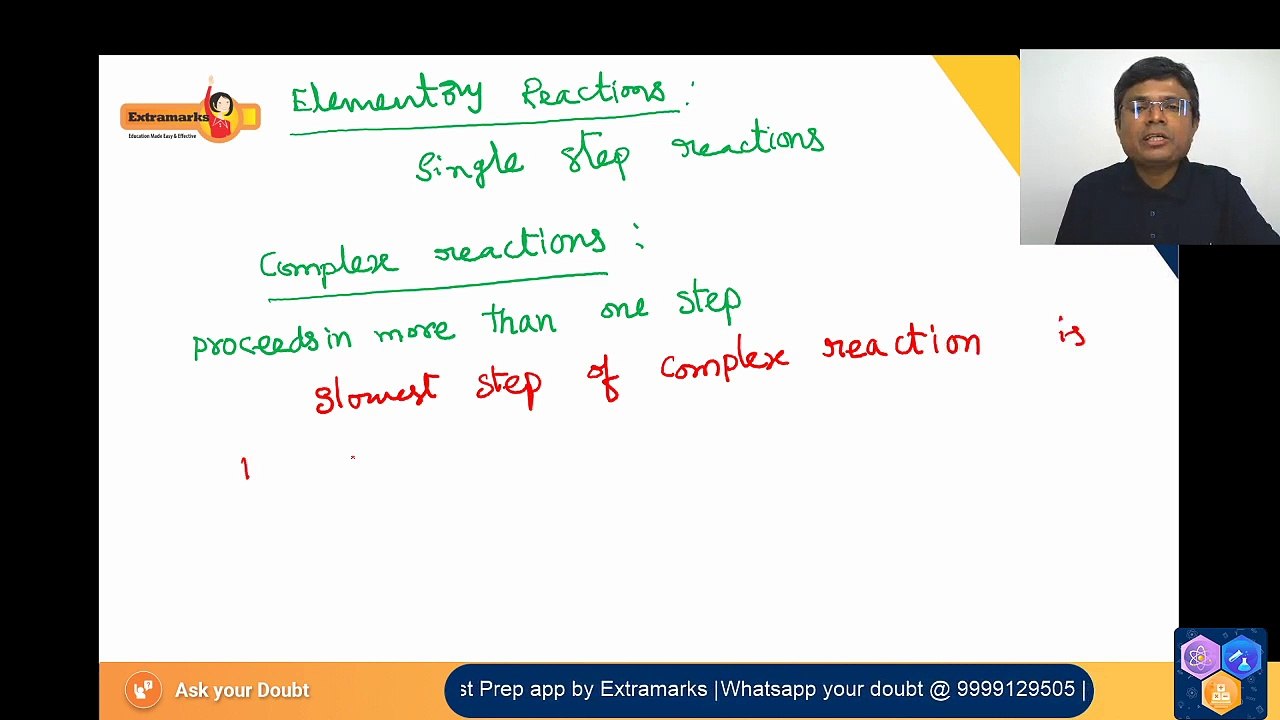 Extramarks
Education Made Easy & Effective
Elementory Reactions :
Single step reactions
Complex reactions :
proceeds in more than one step
slowest step of complex reaction is
Ask your Doubt
st Prep app by Extramarks |Whatsapp your doubt @ 9999129505 |